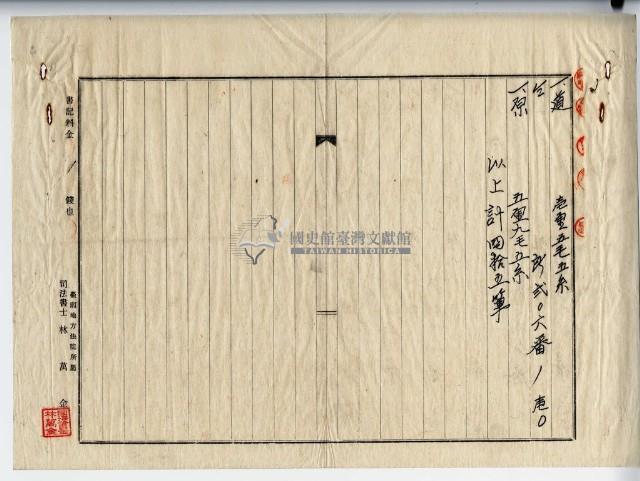 一、道
壱厘五毛五糸
仝 所 弐〇六番ノ壱〇
一、原
五厘九毛五糸
以上計四拾五筆
國史館臺灣文獻館
TAIWAN HISTORICA
書記料金 錢也
臺南地方法院所屬
司法書士 林 萬 金